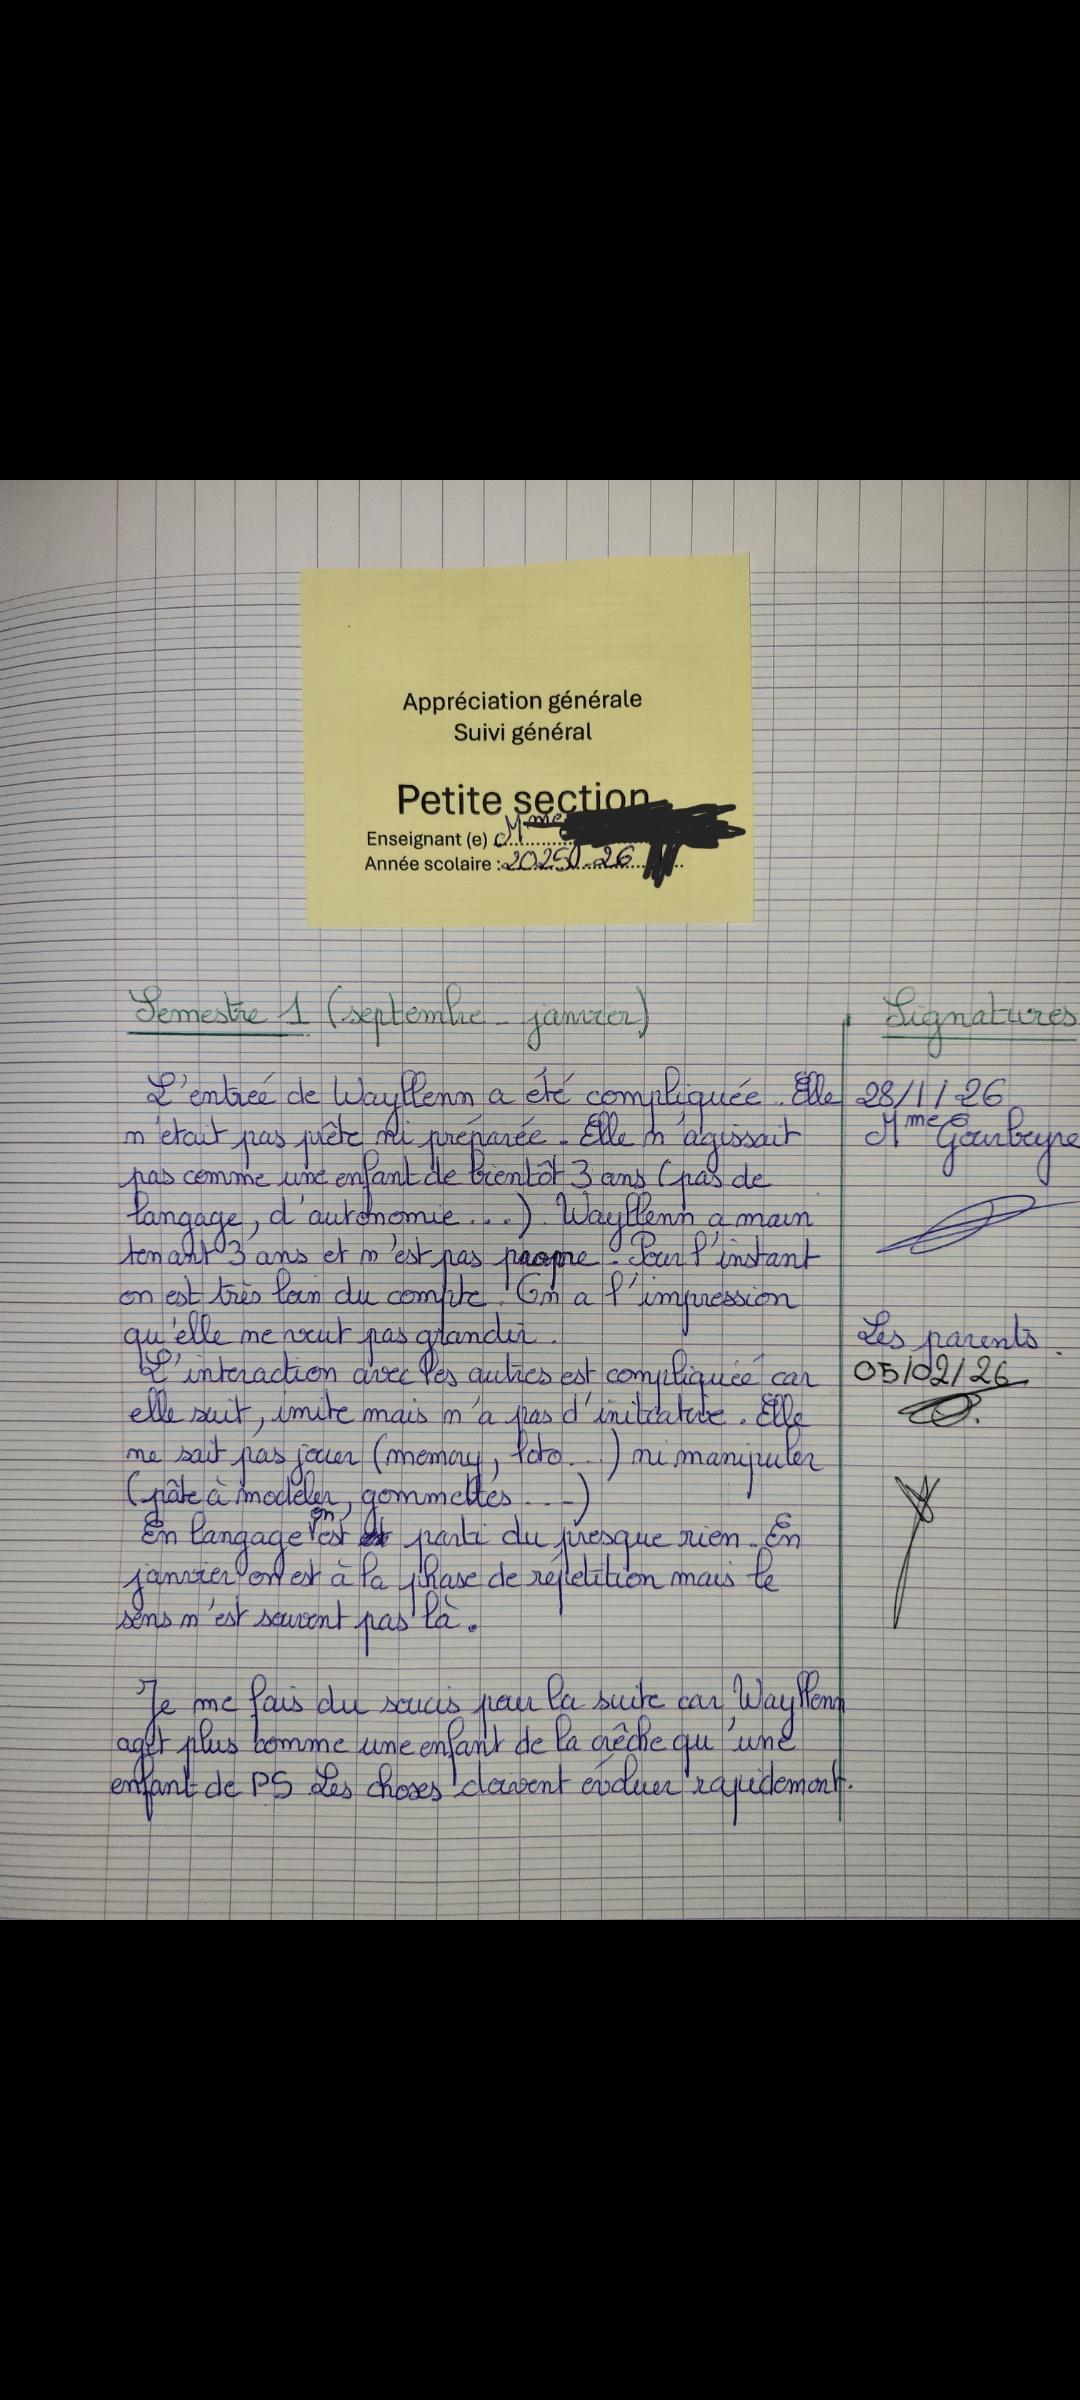 Appréciation générale
Suivi général
Petite section
Enseignant (e) Mme
Année scolaire : 2025-26
Semestre 1 (septembre - janvier)
Signatures
L'entrée de Wayllenn a été compliquée. Elle
n'était pas prête ni préparée. Elle n'agissait
pas comme une enfant de bientôt 3 ans (pas de
langage, d'autonomie...). Wayllenn a main
tenant 3 ans et n'est pas propre. Pour l'instant
on est très loin du compte. On a l'impression
qu'elle ne veut pas grandir.
L'interaction avec les autres est compliquée car
elle suit, imite mais n'a pas d'initiative. Elle
ne sait pas jouer (memory, loto...) ni manipuler
(pâte à modeler, gommettes...)
En langage on est parti du presque rien. En
janvier on est à la phase de répétition mais le
sens n'est souvent pas là.
Je me fais du soucis pour la suite car Wayllenn
agit plus comme une enfant de la crêche qu'une
enfant de PS Les choses doivent évoluer rapidement.
28/1/26
Mme Gourbeyre
Les parents.
05/02/26